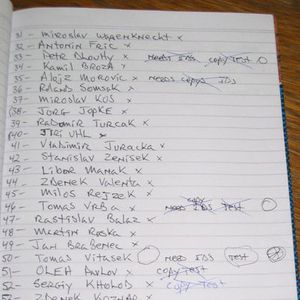 31 - Miroslav Wagenknecht x
32 - Antonin Fric x
33 - Petr Dlouhy x NEEDS IDS COPY TEST
34 - Kamil Broza x
35 - Alojz Morovic x NEEDS IDS
36 - Roland Somsak x
37 - Miroslav Kos x
38 - Jorg Jopke x
39 - Radomir Turcak x
40 - Jiri Uhl x
41 - Vladimir Juracka x
42 - Stanislav Zenisek x
43 - Libor Manak x
44 - Zdenek Valenta x
45 - Milos Rejzek x
46 - Tomas Vrba x NEED IDS TEST
47 - Rastislav Balaz x
48 - Martin Raska x
49 - Jan Brabenec x
50 - Tomas Vitasek NEED IDS TEST
51 - OLEH Pavlov x COPY TEST
52 - Sergiy Khokod x COPY TEST
Zdenek